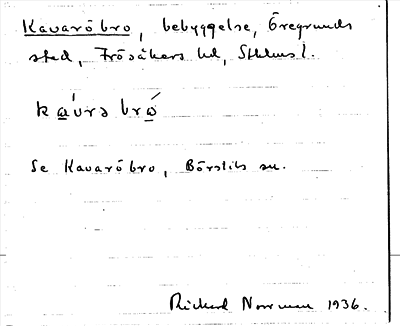 Kavaröbro, bebyggelse, Öregrunds
stad, Frösåkers hd, Sthlms l.
kavrə brω
Se Kavaröbro, Börstils sn.
Rickard Norrman 1936.